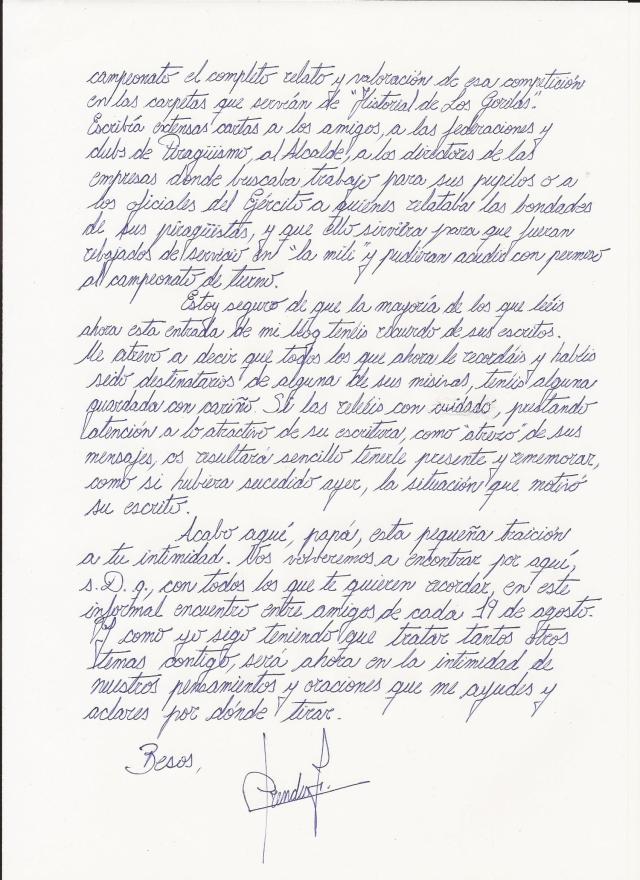 campeonato el completo relato y valoración de esa competición
en las carpetas que servían de "Historial de Los Gorilas".
Escribía extensas cartas a los amigos, a las federaciones y
clubs de Piragüismo, al Alcalde, a los directores de las
empresas donde buscaba trabajo para sus pupilos o a
los oficiales del Ejército a quienes relataba las bondades
de sus piragüistas, y que ello sirviera para que fueran
rebajados de servicio en "la mili" y pudieran acudir con permiso
al campeonato de turno.
Estoy seguro de que la mayoría de los que leéis
ahora esta entrada de mi blog tenéis recuerdo de sus escritos.
Me atrevo a decir que todos los que ahora le recordáis y habéis
sido destinatarios de alguna de sus misivas, tenéis alguna
guardada con cariño. Si las releéis con cuidado, prestando
atención a lo atractivo de su escritura, como "atrezo" de sus
mensajes, os resultará sencillo tenerle presente y rememorar,
como si hubiera sucedido ayer, la situación que motivó
su escrito.
Acabo aquí, papá, esta pequeña traición
a tu intimidad. Nos volveremos a encontrar por aquí,
s.D.q., con todos los que te quieren recordar, en este
informal encuentro entre amigos de cada 19 de agosto.
Y como yo sigo teniendo que tratar tantos otros
temas contigo, será ahora en la intimidad de
nuestros pensamientos y oraciones que me ayudes y
aclares por dónde tirar.
Besos,